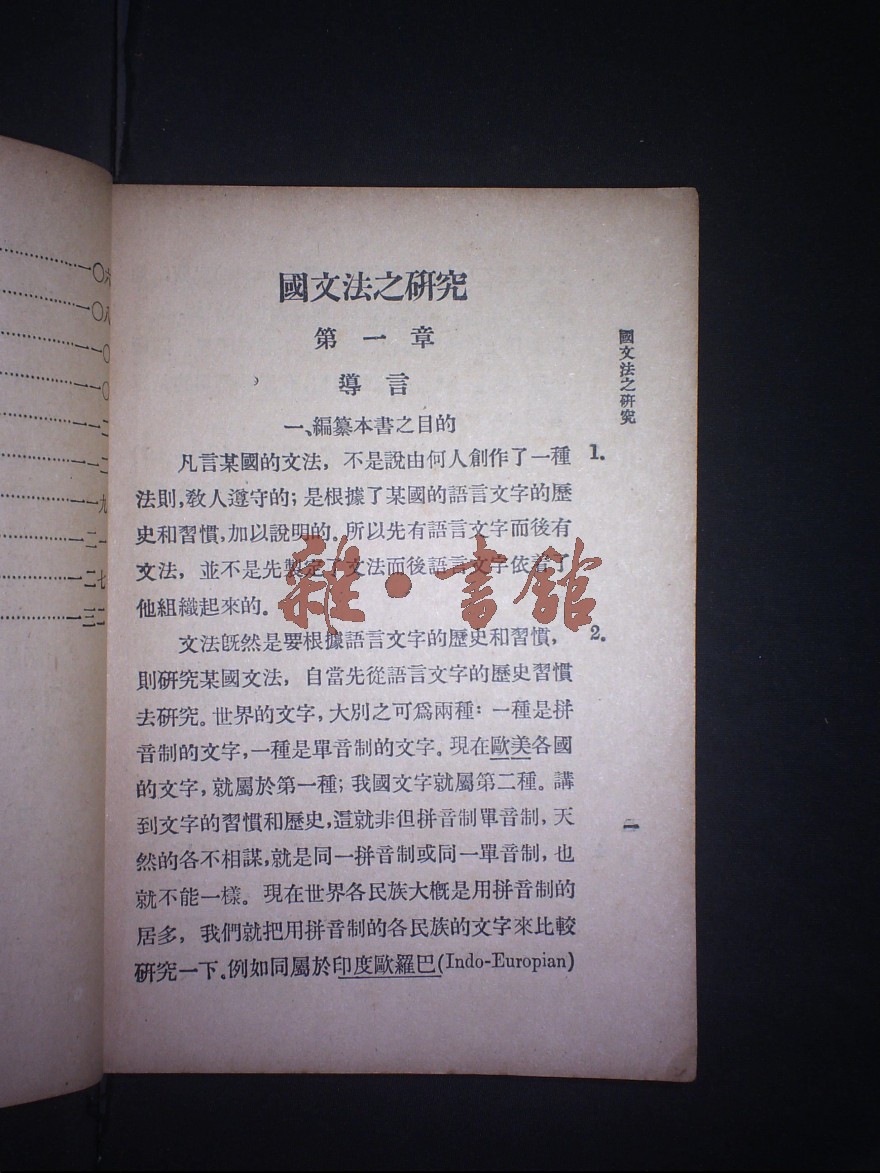 國文法之研究
第一章
導言
一、編纂本書之目的
凡言某國的文法，不是說由何人創作了一種
法則，敎人遵守的；是根據了某國的語言文字的歷
史和習慣，加以說明的。所以先有語言文字而後有
文法，並不是先製定了文法而後語言文字依着了
他組織起來的。
文法旣然是要根據語言文字的歷史和習慣，
則研究某國文法，自當先從語言文字的歷史習慣
去研究。世界的文字，大別之可爲兩種：一種是拼
音制的文字，一種是單音制的文字。現在歐美各國
的文字，就屬於第一種；我國文字就屬第二種。講
到文字的習慣和歷史，這就非但拼音制單音制，天
然的各不相謀，就是同一拼音制或同一單音制，也
就不能一樣。現在世界各民族大槪是用拼音制的
居多，我們就把用拼音制的各民族的文字來比較
研究一下。例如同屬於印度歐羅巴(Indo-Europian)
1.
2.
國文法之研究
一
雜·書館
一〇六
一〇八
一一〇
一一〇
一一二
一一二
一一九
一二一
一二七
一三二